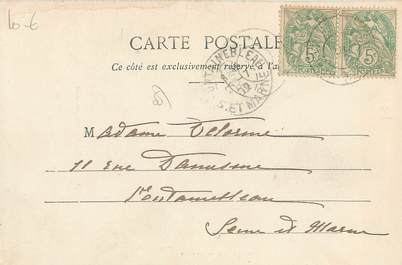 10-€
CARTE POSTALE
Ce côté est exclusivement réservé à l'a
FONTAINEBLEAU
S. ET MARNE
5c
5c
Madame Delorme
11 rue Damesme
Fontainebleau
Seine et Marne